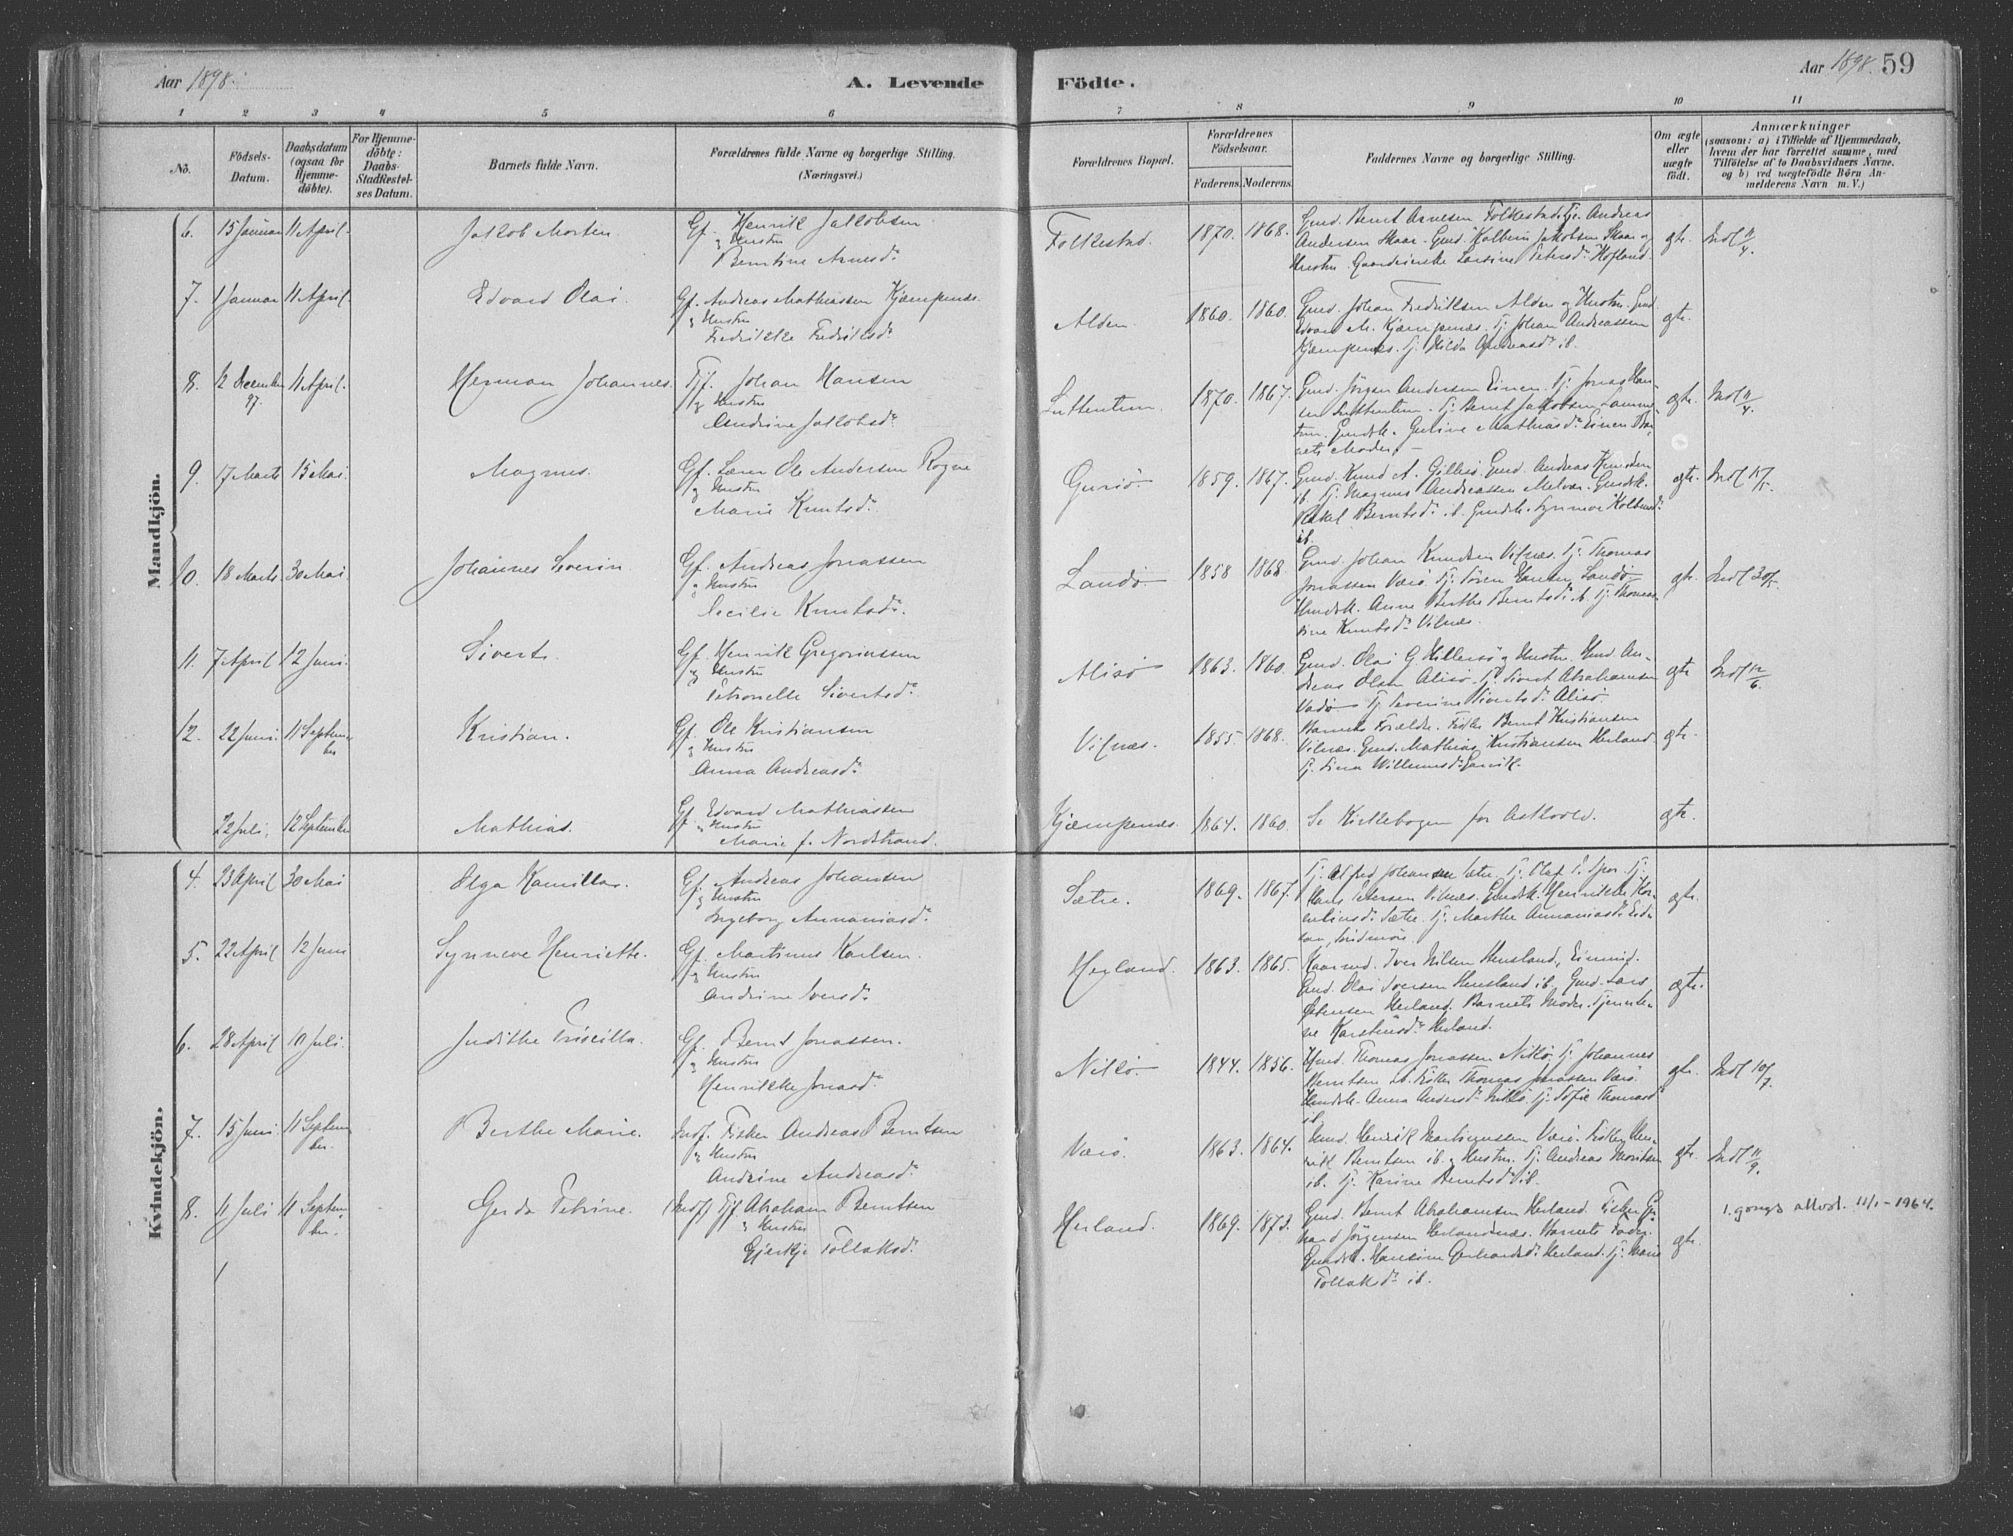 Aar 1898.
A. Levende
Födte.
Aar 1898. 59
1 2 3 4 5 6 7 8 9 10 11
No.
Födsels-
Datum.
Daabsdatum
(ogsaa for
Hjemme-
döbte).
For Hjemme-
döbte:
Daabs-
Stadfæstel-
ses Datum.
Barnets fulde Navn.
Forældrenes fulde Navne og borgerlige Stilling.
(Næringsvei.)
Forældrenes Bopæl.
Forældrenes
Födselsaar.
Faderens. Moderens.
Faddernes Navne og borgerlige Stilling.
Om ægte
eller
uægte
födt.
Anmærkninger
(saasom: a) i Tilfælde af Hjemmedaab,
hvem der har forrettet samme, med
Tilföielse af to Daabsvidners Navne,
og b) ved uægtefödte Börn An-
melderens Navn m. V.)
Mandkjön.
6. 15 Januar 11 April. Jakob Morten. Gf. Henrik Jakobsen
og Hustru
Berntine Arnesd.
Folkestad. 1870. 1868. Gmd. Bernt Arnesen Folkestad. Tj. Andreas
Andersen Skaar. Gmd. Kolbein Jakobsen Skaar og
Hustru. Larsine Petersd. Hofland.
ægte. Indf 11/4.
7. 1 Januar 11 April. Edvard Olai. Gf. Andreas Mathiassen Kjempenes.
og Hustru
Fredrikke Fredriksd.
Alden. 1860. 1860. Gmd. Johan Fredriksen Alden og Hustru. Gmd.
Edvard M. Kjæmpenæs. Tj. Johan Andreassen
Kjæmpenes. Tj. Hilda Andreasd. ib.
ægte.
8. 12 December 97. 11 April. Herman Johannes. Tjf. Johan Hansen
og Hustru
Andrine Jakobsd.
1870. 1867. Gmd. Jörgen Andersen Einen. Tj. Jonas Han-
sen Tj. Bernt Jakobsen
Gurine Mathiasd. Einen. Bar-
nets Moder.
ægte. Indf 11/4.
9. 17 Marts 15 Mai. Magnus. Gf. Lærer Ole Andersen Rogne
og Hustru
Marie Knutsd.
1859. 1867. Gmd. Knud A. Gmd. Andreas Knudsen
ib. Tj. Magnus Andreassen Melvær. Gmdsk.
Rakel Berntsd. ib. Gmdsk. Synneve Kolbeinsd.
ib.
ægte. Indf 15/5.
10. 18 Marts 30 Mai. Johannes Severin Gf. Andreas Jonassen
og Hustru
Cecilie Knutsd.
Landö 1858 1868. Gmd. Johan Knudsen Vilnæs. Tj. Thomas
Jonassen Værö. Tj. Sören Hansen Landö.
Anne Berthe Berntsd. ib. Tj. Thoma-
sine Knutsd. Vilnæs.
ægte. Indf 30/5.
11. 7 April 12 Juni. Sivert. Gf. Henrik Gregoriussen
og Hustru
Petronelle Sivertsd.
Alisö 1863. 1860. Gmd. Olai G. Hillersö og Hustru. Gmd. An-
dreas Olsen Alisö. Tj. Sivert Abrahamsen
Tj. Severine Sivertsd. Alisö.
ægte Indf 12/6.
12. 22 Juni. 11 Septem-
ber Kristian. Gf. Ole Kristiansen
og Hustru
Anna Andreasd.
Vilnæs. 1855. 1868. Barnets Forældre. Fisker Bernt Kristiansen
Vilnæs. Gmd. Mathias Kristiansen Herland.
Tj. Sina Willumsd.
ægte.
22 Juli. 12 September Mathias. Gf. Edvard Mathiassen
og Hustru
Marie f. Nordstrand.
Kjæmpenæs. 1864. 1860. Se Kirkebogen for Askvold. ægte.
Kvindekjön.
4. 23 April 30 Mai Olga Kamilla. Gf. Andreas Johansen
og Hustru
Ingeborg Annaniasd.
Sætre. 1869. 1867. Tj. Alfred Johansen Sætre. Tj. Olaf
Hans Petersen Vilnæs. Gmdsk. Henrikke Kor-
neliusd. Sætre. Tj. Marthe Annaniasd.
Söndmöre.
ægte.
5. 22 April 12 Juni Synneve Henriette. Gf. Martinus Karlsen.
og Hustru
Andrine Iversd.
Herland. 1863. 1865. Kaarmd. Iver Nilsen Hensland,
Gmd. Olai Iversen Hensland ib. Gmd. Lars
Herland. Barnets Moder.
Karstensd. Herland.
ægte.
6. 28 April 10 Juli. Judithe Priscilla. Gf. Bernt Jonassen.
og Hustru
Henrikke Jonasd.
Nitlö 1844. 1856. Gmd. Thomas Jonassen Nitlö. Tj. Johannes
Berntsen ib. Fisker Thomas Jonassen Værö.
Anna Andersd. Nitlö. Tj. Sofie Thomasd.
ib.
ægte. Indf 10/7.
7. 15 Juni. 11 Septem-
ber. Berthe Marie. Indf. Fisker Andreas Berntsen
og Hustru
Andrine Andreasd.
Værö. 1863. 1864. Gmd. Henrik Martinussen Værö. Fisker Hen-
rik Berntsen ib. og Hustru. Tj. Andreas
ib. Tj. Karine Berntsd. ib.
ægte. Indf 11/9.
8. 11 Juli 11 Septem-
ber. Gerda Petrine. (Indf) Tjf Abraham Berntsen
og Hustru
Gjertje Tollaksd.
Herland. 1869. 1873. Gmd. Bernt Abrahamsen Herland. Fisker Ger-
hard Jörgensen Herlandnæs. Barnets Fader.
Gmdsk. Hansine Gerhardsd. Herland. Tj. Marie
Tollaksd. ib.
ægte. 1. gongs attest. 11/1-1964.